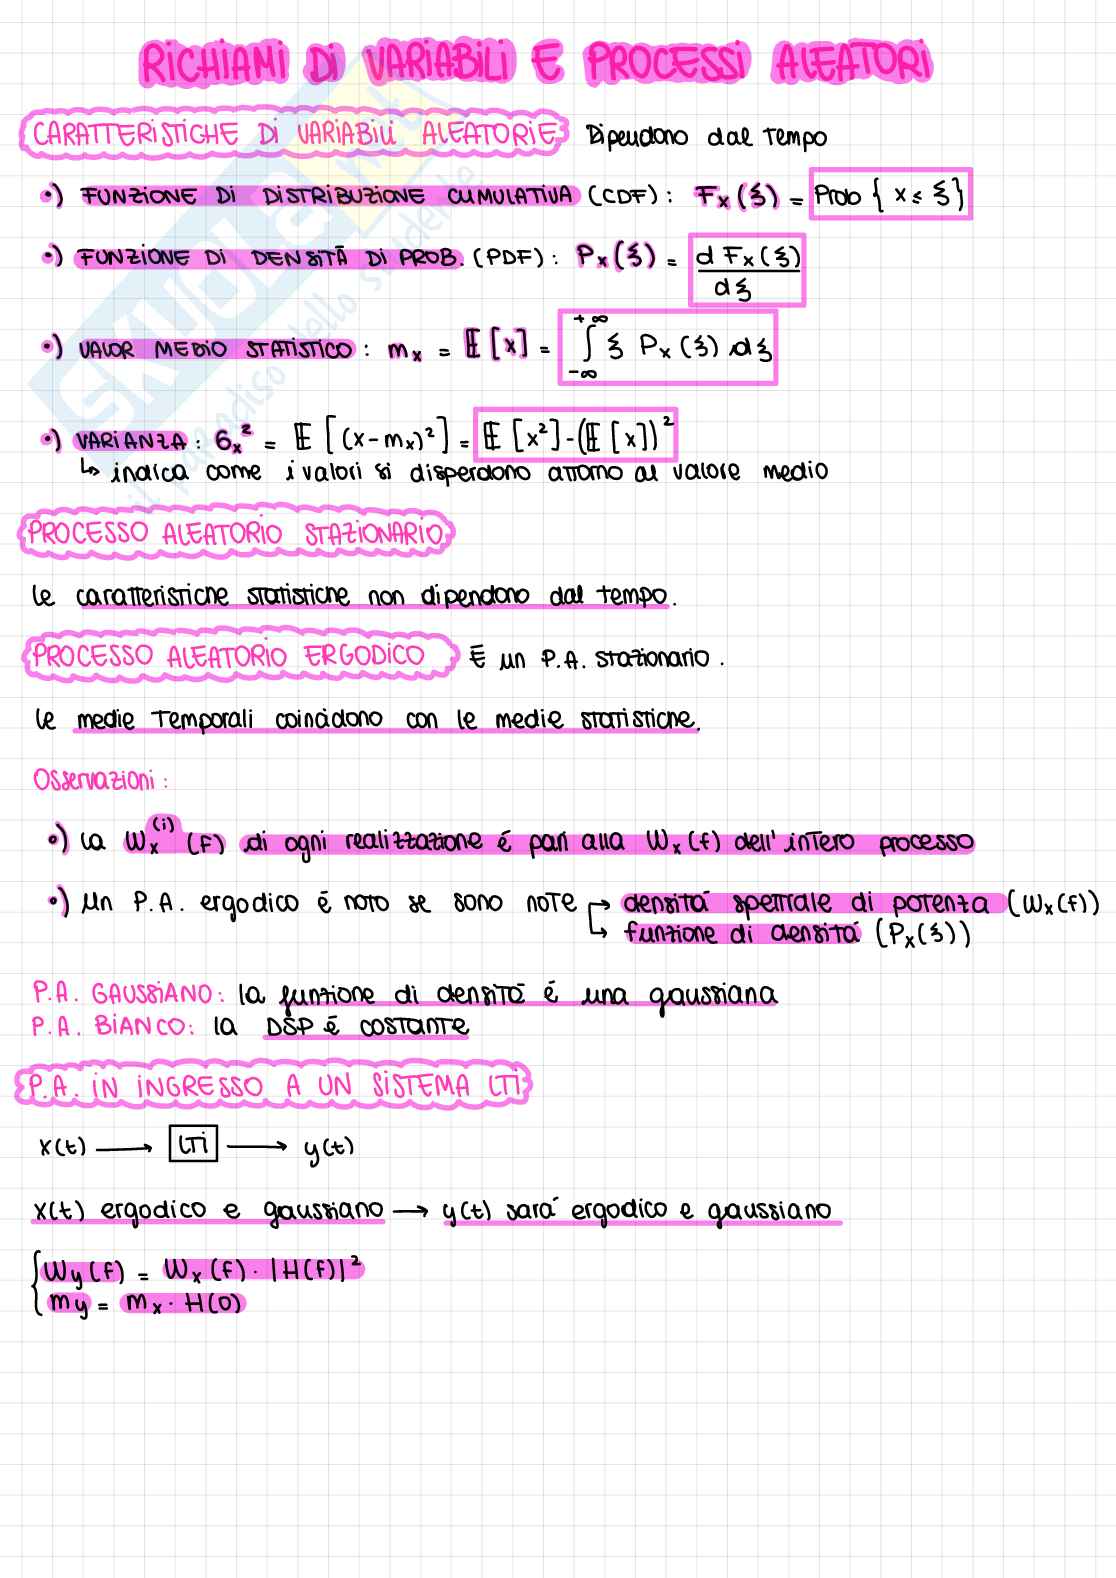 RICHIAMI DI VARIABILI E PROCESSI ALEATORI
CARATTERISTICHE DI VARIABILI ALEATORIE Dipendono dal tempo
•) FUNZIONE DI DISTRIBUZIONE CUMULATIVA (CDF): Fx(ξ) = Prob { x ≤ ξ }
•) FUNZIONE DI DENSITÀ DI PROB. (PDF): Px(ξ) = d Fx(ξ) / dξ
•) VALOR MEDIO STATISTICO: mx = E[x] = ∫_{-∞}^{+∞} ξ Px(ξ) dξ
•) VARIANZA: σx² = E[(x-mx)²] = E[x²]-(E[x])²
↳ indica come i valori si disperdono attorno al valore medio
PROCESSO ALEATORIO STAZIONARIO
le caratteristiche statistiche non dipendono dal tempo.
PROCESSO ALEATORIO ERGODICO È un P.A. stazionario.
le medie temporali coincidono con le medie statistiche.
Osservazioni:
•) la Wx^(i)(f) di ogni realizzazione è pari alla Wx(f) dell'intero processo
•) un P.A. ergodico è noto se sono note → densità spettrale di potenza (Wx(f))
↳ funzione di densità (Px(ξ))
P.A. GAUSSIANO: la funzione di densità è una gaussiana
P.A. BIANCO: la DSP è costante
P.A. IN INGRESSO A UN SISTEMA LTI
x(t) → LTI → y(t)
x(t) ergodico e gaussiano → y(t) sarà ergodico e gaussiano
{ Wy(f) = Wx(f) · |H(f)|²
my = mx · H(0)
SKUOLA.net
il paradiso dello studente